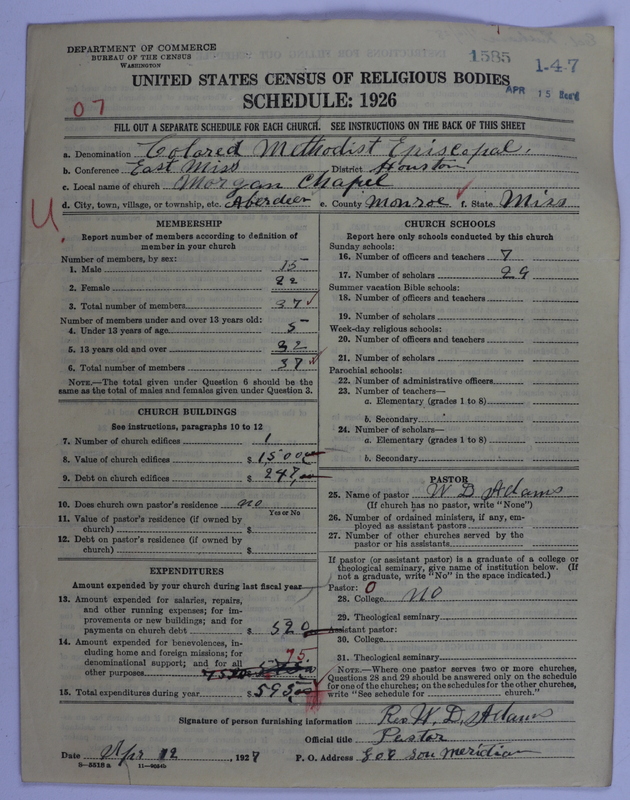 DEPARTMENT OF COMMERCE
BUREAU OF THE CENSUS
WASHINGTON
1585
1-4-7
APR 15
UNITED STATES CENSUS OF RELIGIOUS BODIES
SCHEDULE: 1926
07
FILL OUT A SEPARATE SCHEDULE FOR EACH CHURCH. SEE INSTRUCTIONS ON THE BACK OF THIS SHEET
a. Denomination Colored Methodist Episcopal.
b. Conference East Miss District Houston
c. Local name of church Morgan Chapel
d. City, town, village, or township, etc. Aberdeen e. County Monroe f. State Miss
U.
MEMBERSHIP
Report number of members according to definition of
member in your church
Number of members, by sex:
1. Male 15
2. Female 22
3. Total number of members 37
Number of members under and over 13 years old:
4. Under 13 years of age 5
5. 13 years old and over 32
6. Total number of members 37
NOTE.—The total given under Question 6 should be the
same as the total of males and females given under Question 3.
CHURCH BUILDINGS
See instructions, paragraphs 10 to 12
7. Number of church edifices 1
8. Value of church edifices $1,500
9. Debt on church edifices $247,00
10. Does church own pastor's residence no
Yes or No
11. Value of pastor's residence (if owned by
church) $
12. Debt on pastor's residence (if owned by
church) $
EXPENDITURES
Amount expended by your church during last fiscal year
13. Amount expended for salaries, repairs,
and other running expenses; for im-
provements or new buildings; and for
payments on church debt $520
14. Amount expended for benevolences, in-
cluding home and foreign missions; for
denominational support; and for all
other purposes 75
15. Total expenditures during year $595
CHURCH SCHOOLS
Report here only schools conducted by this church
Sunday schools:
16. Number of officers and teachers 7
17. Number of scholars 29
Summer vacation Bible schools:
18. Number of officers and teachers
19. Number of scholars
Week-day religious schools:
20. Number of officers and teachers
21. Number of scholars
Parochial schools:
22. Number of administrative officers
23. Number of teachers—
a. Elementary (grades 1 to 8)
b. Secondary
24. Number of scholars—
a. Elementary (grades 1 to 8)
b. Secondary
PASTOR
25. Name of pastor W. D. Adams
(If church has no pastor, write "None")
26. Number of ordained ministers, if any, em-
ployed as assistant pastors
27. Number of other churches served by the
pastor or his assistants
If pastor (or assistant pastor) is a graduate of a college or
theological seminary, give name of institution below. (If
not a graduate, write "No" in the space indicated.)
Pastor: 0
28. College no
29. Theological seminary
Assistant pastor:
30. College
31. Theological seminary
NOTE.—Where one pastor serves two or more churches,
Questions 28 and 29 should be answered only on the schedule
for one of the churches; on the schedules for the other churches,
write "See schedule for church."
Signature of person furnishing information Rev W. D. Adams
Official title Pastor
Date Apr 12, 1927 P. O. Address Sou Meridian